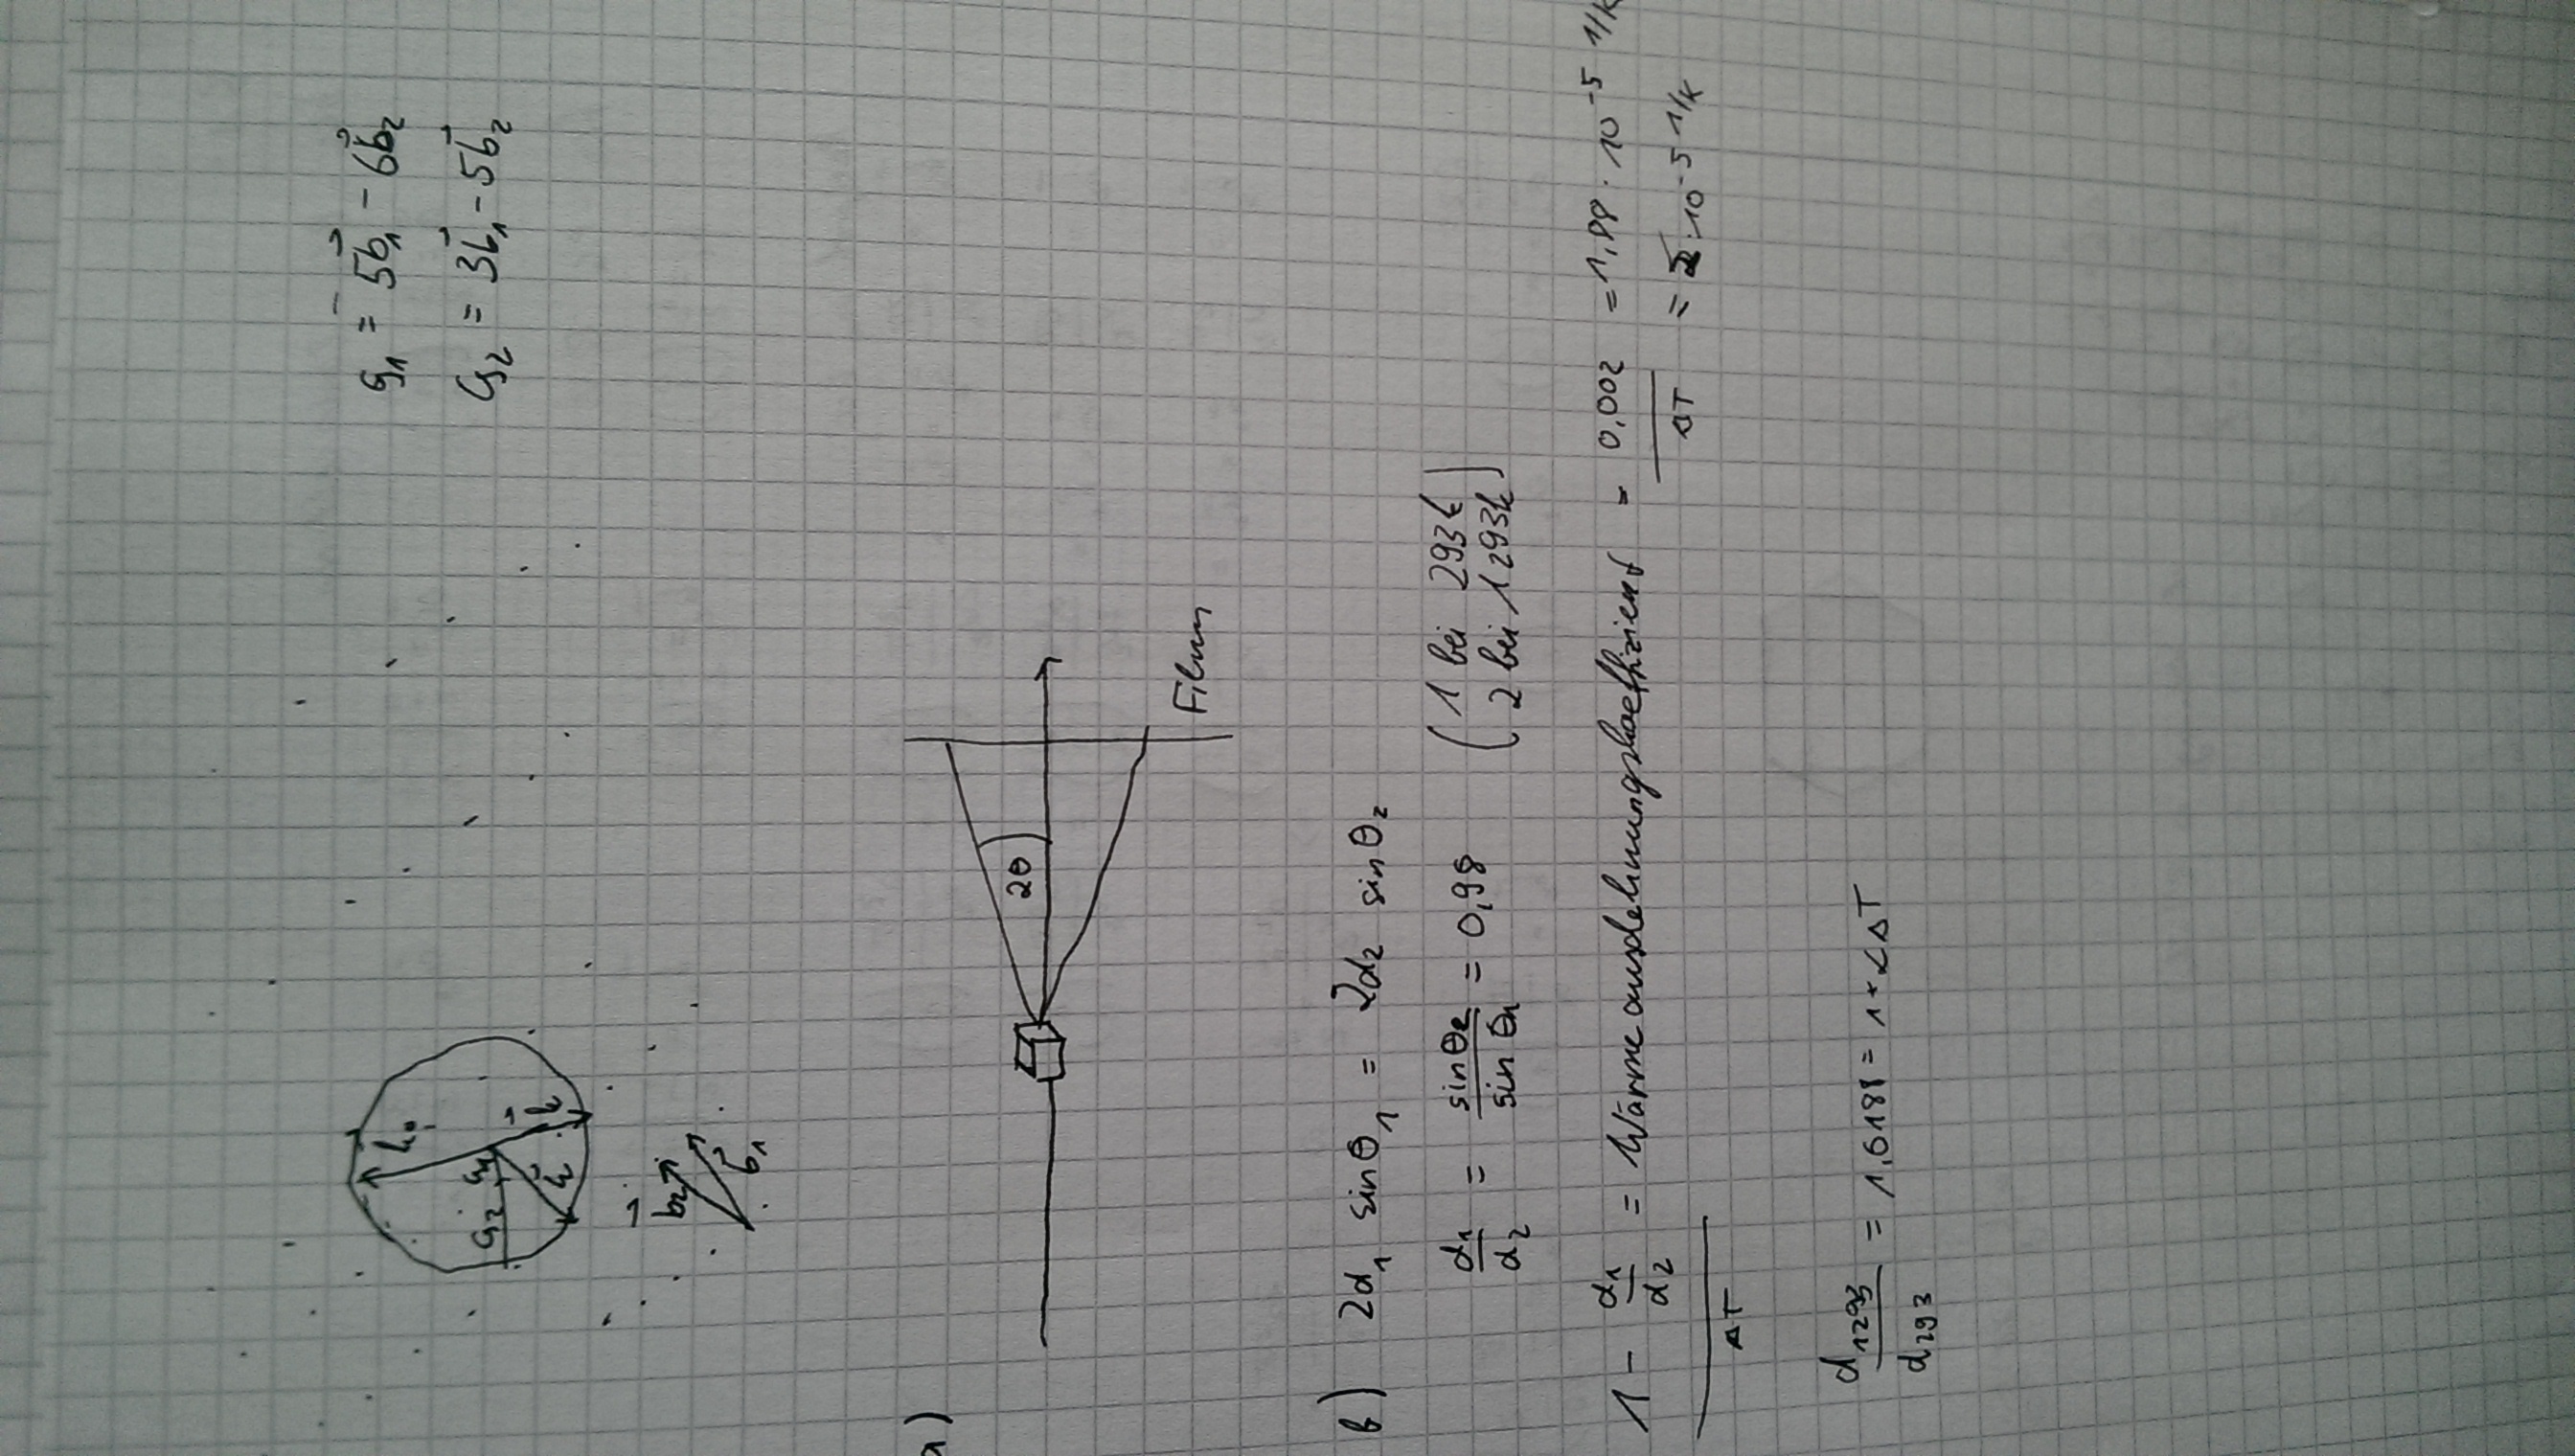 G₁ = 5b⃗₁ - 6b⃗₂
G₂ = 3b⃗₁ - 5b⃗₂
k₀
k⃗
G₂ G₁
k⃗
b⃗₂
b⃗₁
a)
2θ
Film
b) 2d₁ sinθ₁ = 2d₂ sinθ₂
d₁/d₂ = sinθ₂/sinθ₁ = 0,98 (1 bei 293k
2 bei 1293k)
(1 - d₁/d₂)/ΔT = Wärmeausdehnungskoeffizient = 0,002/ΔT = 1,99 · 10⁻⁵ 1/K
= 2·10⁻⁵ 1/K
d₁₂₉₃/d₂₉₃ = 1,0198 = 1+αΔT